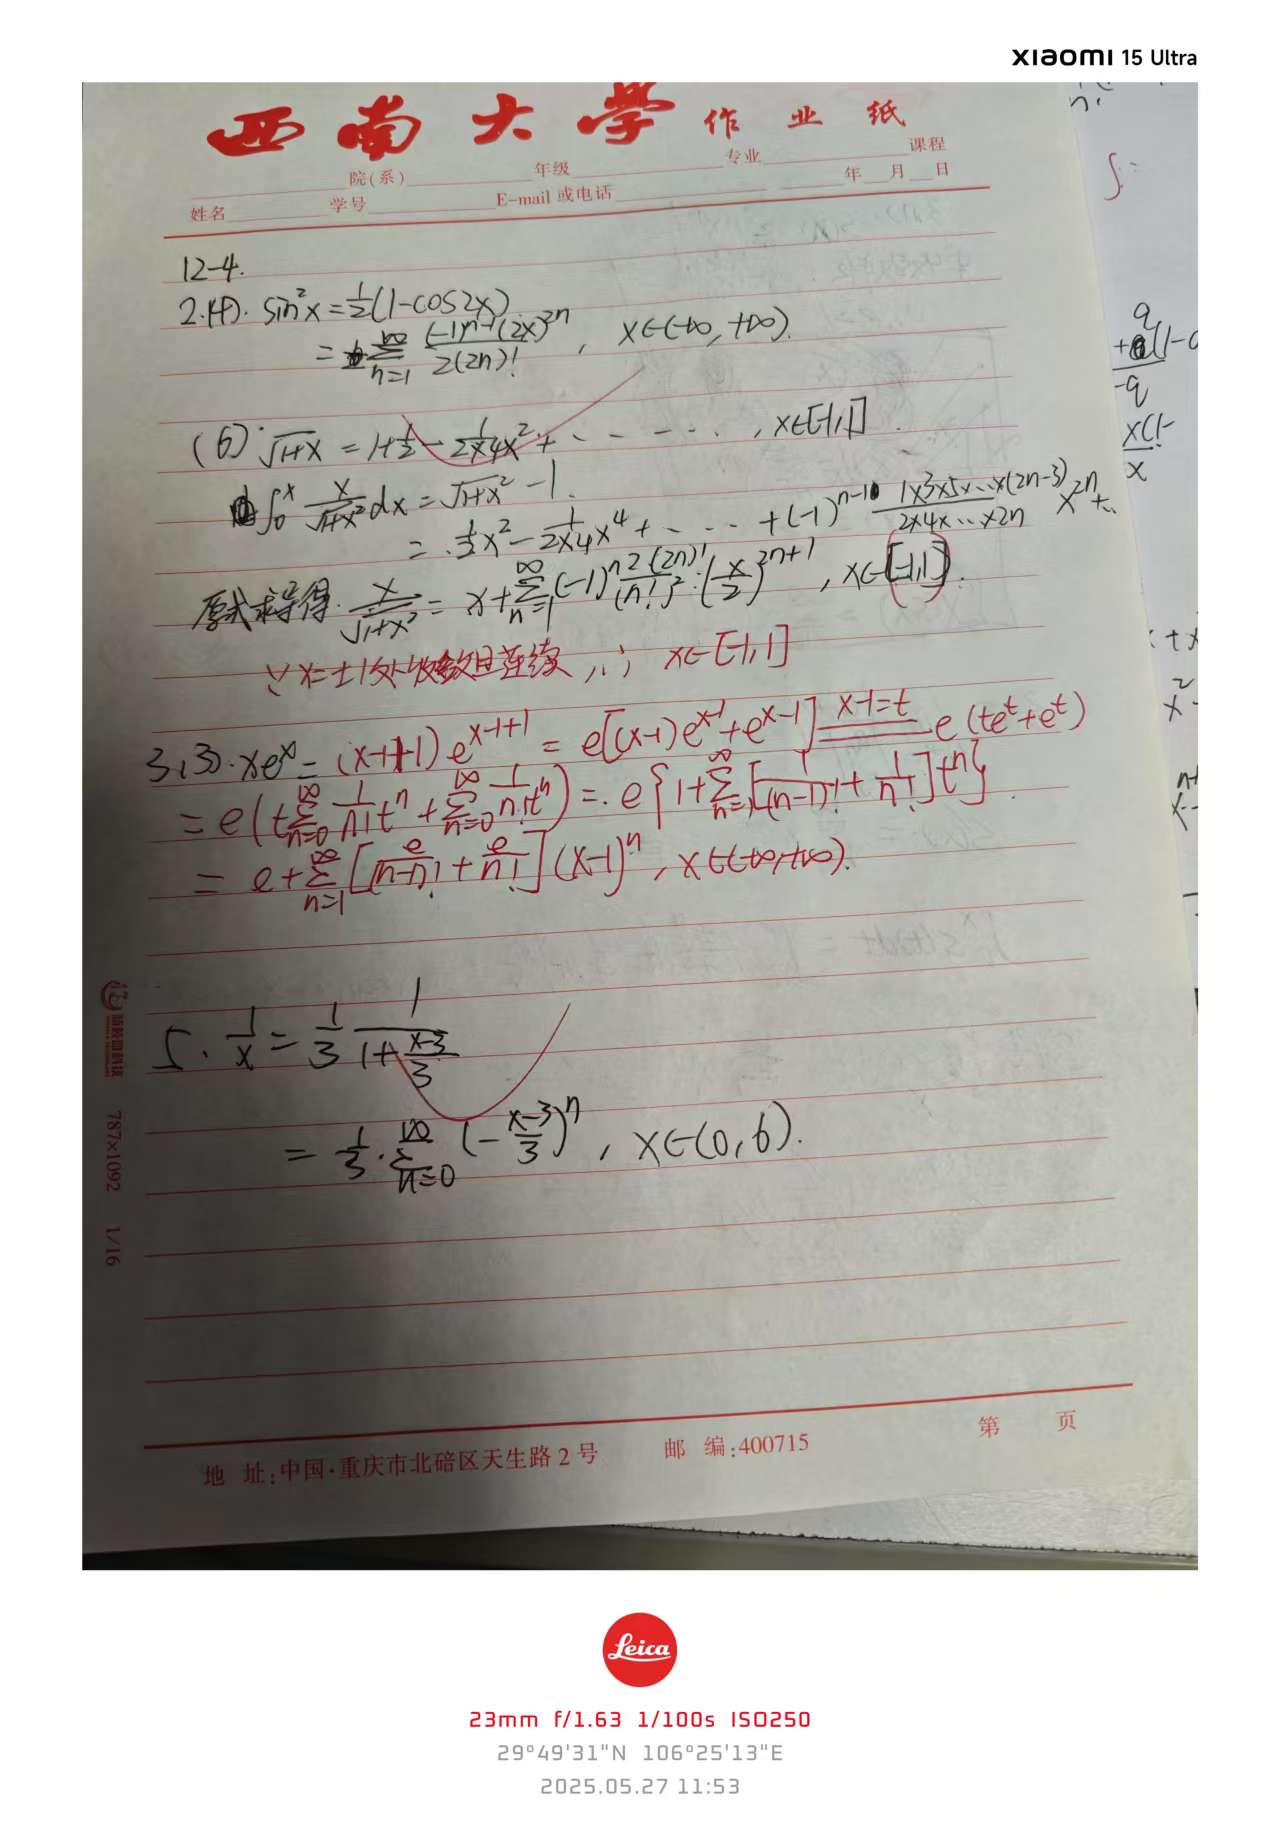 xiaomi 15 Ultra
西南大学 作业纸
院(系) 年级 专业 课程
姓名 学号 E-mail 或电话 年 月 日
12-4.
2.(4). sin²x = 1/2(1-cos2x)
= ∑_{n=1}^{∞} (-1)^{n-1}(2x)^{2n} / 2(2n)! , x∈(-∞, +∞).
(6) √(1+x) = 1+1/2 - 1/(2×4) x² + · · · · · · , x∈[-1,1].
∫_0^x x/√(1+x²) dx = √(1+x²) - 1.
= 1/2 x² - 1/(2×4) x⁴ + · · · · + (-1)^{n-1} (1×3×5×…×(2n-3))/(2×4×…×2n) x^{2n} + …
原式求导得. x/√(1+x²) = x + ∑_{n=1}^{∞} (-1)^n 2(2n)!/(n!)² · (x/2)^{2n+1}, x∈[-1,1].
∵ x=±1处收敛且连续, ∴ x∈[-1,1]
3.(3). xe^x = (x-1+1) e^{x-1+1} = e[(x-1)e^{x-1}+e^{x-1}] x-1=t e(te^t+e^t)
= e(t∑_{n=0}^{∞} 1/n! t^n + ∑_{n=0}^{∞} 1/n! t^n) = e{1+∑_{n=1}^{∞}[1/(n-1)! + 1/n!]t^n}.
= e+∑_{n=1}^{∞} [e/(n-1)! + e/n!](x-1)^n, x∈(-∞,+∞).
5. 1/x = 1/3 · 1/(1+(x-3)/3)
= 1/3 · ∑_{n=0}^{∞} (-(x-3)/3)^n, x∈(0,6).
787×1092 1/16
第 页
地 址:中国·重庆市北碚区天生路 2 号 邮 编:400715
Leica
23mm f/1.63 1/100s ISO250
29°49'31"N 106°25'13"E
2025.05.27 11:53